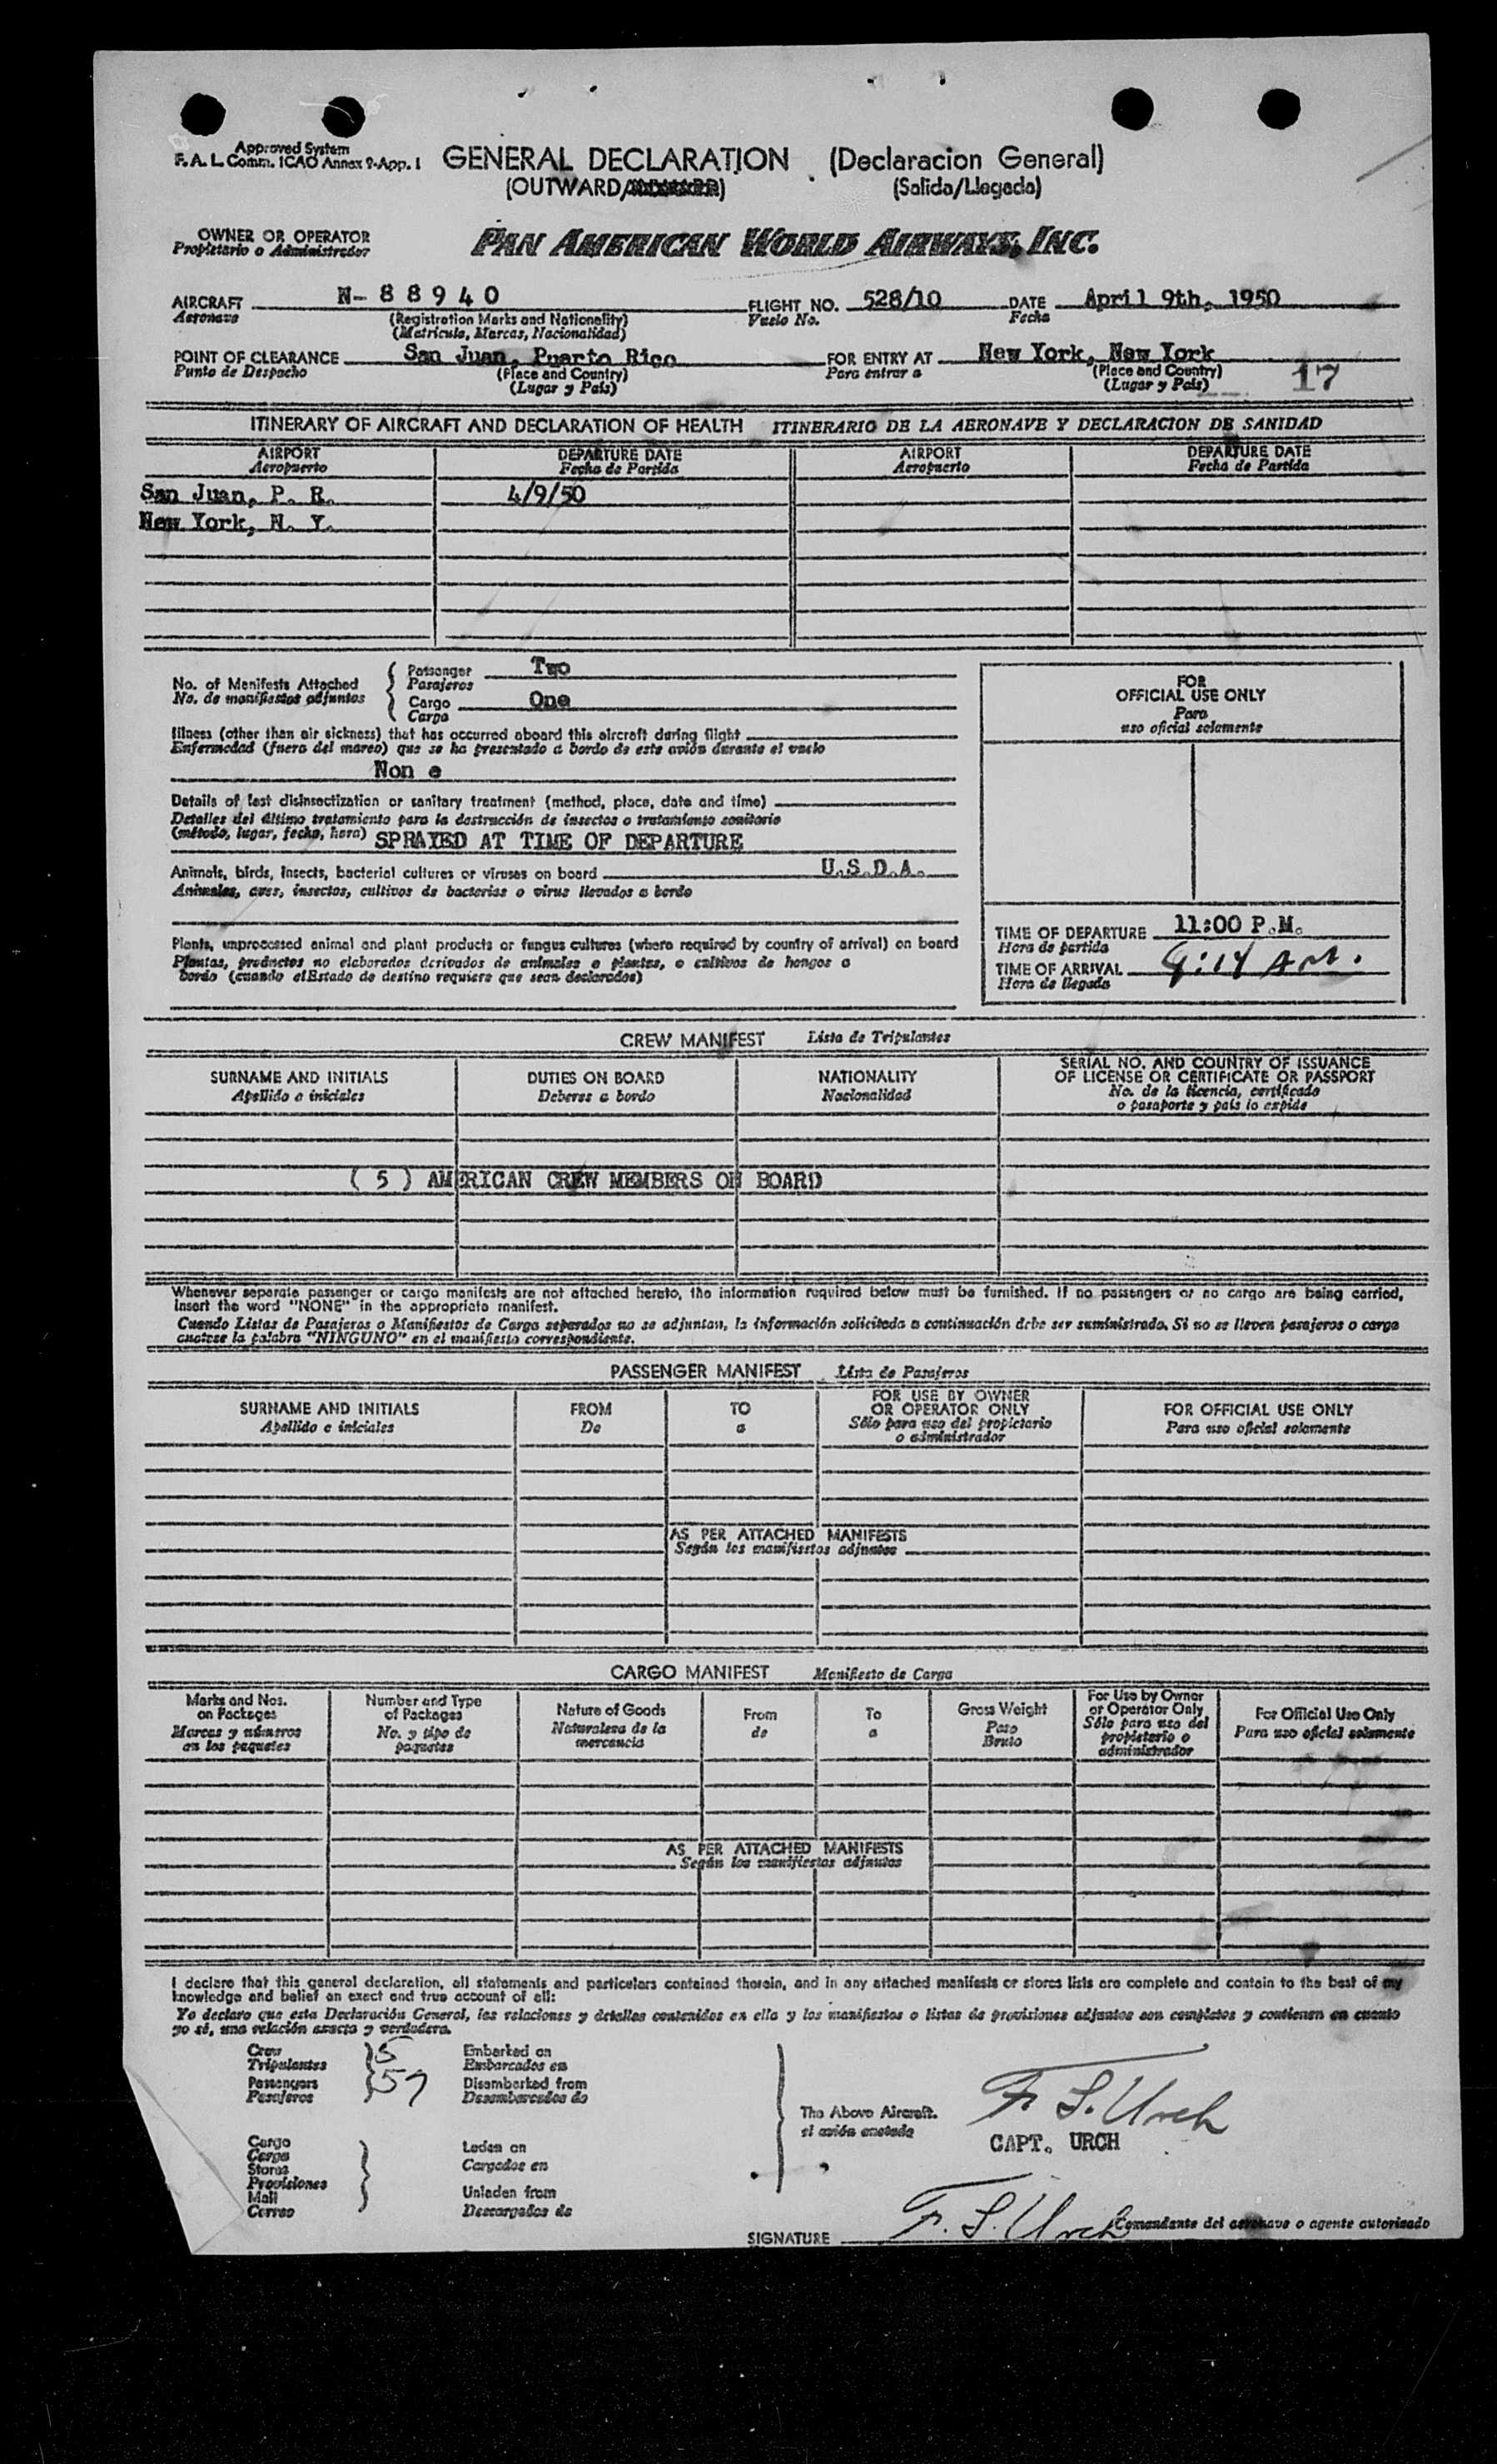 Approved System
F. A. L. Comm. ICAO Annex 9-App. 1
GENERAL DECLARATION (Declaracion General)
(OUTWARD/ ) (Salida/Llegada)
OWNER OR OPERATOR
Propietario o Administrador
PAN AMERICAN WORLD AIRWAYS, INC.
AIRCRAFT N-88940 FLIGHT NO. 528/10 DATE April 9th, 1950
Aeronave (Registration Marks and Nationality) Vuelo No. Fecha
(Matricula, Marcas, Nacionalidad)
POINT OF CLEARANCE San Juan, Puerto Rico FOR ENTRY AT New York, New York
Punto de Despacho (Place and Country) Para entrar a (Place and Country) 17
(Lugar y País) (Lugar y País)
ITINERARY OF AIRCRAFT AND DECLARATION OF HEALTH ITINERARIO DE LA AERONAVE Y DECLARACION DE SANIDAD
AIRPORT DEPARTURE DATE AIRPORT DEPARTURE DATE
Aeropuerto Fecha de Partida Aeropuerto Fecha de Partida
San Juan, P. R. 4/9/50
New York, N. Y.
No. of Manifests Attached
No. de manifiestos adjuntos
Passenger Two
Pasajeros
Cargo One
Carga
FOR
OFFICIAL USE ONLY
Para
uso oficial solamente
Illness (other than air sickness) that has occurred aboard this aircraft during flight
Enfermedad (fuera del mareo) que se ha presentado a bordo de este avión durante el vuelo
Non e
Details of last disinsectization or sanitary treatment (method, place, date and time)
Detalles del último tratamiento para la destrucción de insectos o tratamiento sanitario
(método, lugar, fecha, hora) SPRAYED AT TIME OF DEPARTURE
Animals, birds, insects, bacterial cultures or viruses on board U.S.D.A.
Animales, aves, insectos, cultivos de bacterias o virus llevados a bordo
Plants, unprocessed animal and plant products or fungus cultures (where required by country of arrival) on board
Plantas, productos no elaborados derivados de animales o plantas, o cultivos de hongos a
bordo (cuando el Estado de destino requiera que sean declarados)
TIME OF DEPARTURE 11:00 P.M.
Hora de partida
TIME OF ARRIVAL 9:14 AM.
Hora de llegada
CREW MANIFEST Lista de Tripulantes
SURNAME AND INITIALS DUTIES ON BOARD NATIONALITY SERIAL NO. AND COUNTRY OF ISSUANCE
OF LICENSE OR CERTIFICATE OR PASSPORT
Apellido e iniciales Deberes a bordo Nacionalidad No. de la licencia, certificado
o pasaporte y país lo expide
( 5 ) AMERICAN CREW MEMBERS ON BOARD
Whenever separate passenger or cargo manifests are not attached hereto, the information required below must be furnished. If no passengers or no cargo are being carried,
insert the word "NONE" in the appropriate manifest.
Cuando Listas de Pasajeros o Manifiestos de Carga separados no se adjuntan, la información solicitada a continuación debe ser suministrada. Si no se lleven pasajeros o carga
anotese la palabra "NINGUNO" en el manifiesto correspondiente.
PASSENGER MANIFEST Lista de Pasajeros
SURNAME AND INITIALS FROM TO FOR USE BY OWNER
OR OPERATOR ONLY FOR OFFICIAL USE ONLY
Apellido e iniciales De a Sólo para uso del propietario
o administrador Para uso oficial solamente
AS PER ATTACHED MANIFESTS
Según los manifiestos adjuntos
CARGO MANIFEST Manifiesto de Carga
Marks and Nos.
on Packages
Marcas y números
en los paquetes
Number and Type
of Packages
No. y tipo de
paquetes
Nature of Goods
Naturaleza de la
mercancía
From
de
To
a
Gross Weight
Peso
Bruto
For Use by Owner
or Operator Only
Sólo para uso del
propietario o
administrador
For Official Use Only
Para uso oficial solamente
AS PER ATTACHED MANIFESTS
Según los manifiestos adjuntos
I declare that this general declaration, all statements and particulars contained therein, and in any attached manifests or stores lists are complete and contain to the best of my
knowledge and belief an exact and true account of all:
Yo declaro que esta Declaración General, las relaciones y detalles contenidos en ella y los manifiestos o listas de provisiones adjuntos son completos y contienen en cuanto
yo sé, una relación exacta y verdadera.
Crew 5 Embarked on
Tripulantes Embarcados en
Passengers 57 Disembarked from
Pasajeros Desembarcados de
The Above Aircraft.
el avión anotado
F. S. Urch
CAPT. URCH
Cargo
Carga
Stores
Provisiones
Mail
Correo
Laden on
Cargados en
Unladen from
Descargados de
SIGNATURE F. S. Urch Comandante del aeronave o agente autorizado